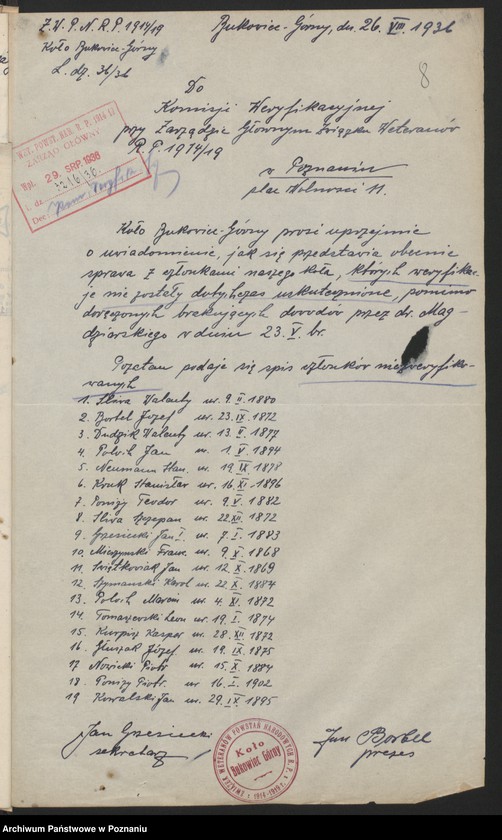 Z.W.P.N.R.P. 1914/19
Koło Bukowiec-Górny
L. dz. 36/36
Bukowiec-Górny, dn. 26. VIII. 1936
8
Do
Komisji Weryfikacyjnej
przy Zarządzie Głównym Związku Weteranów
R.P. 1914/19
w Poznaniu
plac Wolności 11.
ZARZĄD GŁÓWNY
Wpł. 29. SRP. 1936
L. dz. 3216/36.
Koło Bukowiec-Górny prosi uprzejmie
o uwiadomienie, jak się przedstawia obecnie
sprawa z członkami naszego koła, których weryfikac-
je nie zostały dotychczas uskutecznione, pomimo
doręczonych brakujących dowodów przez dr. Mag-
dziarskiego w dniu 23. V. br.
Pozatem podaje się spis członków niezweryfiko-
wanych
1. Śliwa Walenty ur. 9. II. 1880
2. Borbel Józef ur. 23. IX. 1872
3. Dudzik Walenty ur. 13. V. 1877
4. Polvik Jan ur. 1. V. 1894
5. Neumann Stan. ur. 19 IX 1878
6. Kruk Stanisław ur. 16. XI. 1896
7. Poniży Teodor ur. 9. V. 1882
8. Śliwa Szczepan ur. 22. XII. 1872
9. Grzesiecki Jan I. ur. 7. I. 1883
10. Franc. ur. 9. X. 1868
11. Świętkowiak Jan ur. 12. X. 1869
12. Szymański Karol ur. 22. X. 1884
13. Polvik Marcin ur. 4. XI. 1872
14. Tomaszewski Leon ur. 19. I. 1874
15. Kurpisz Kasper ur. 28. XII. 1872
16. Głuszak Józef ur. 19. IX. 1875
17 Nowicki Piotr ur. 15. X. 1884
18. Poniży Piotr. ur 16. I. 1902
19 Kowalski Jan ur. 29. IX 1895
Jan Grzesiecki
sekretarz
ZWIĄZEK WETERANÓW POWSTAŃ NARODOWYCH R.P. z 1914-1919
Koło
Bukowiec Górny
Jan Borbel
prezes
Archiwum Państwowe w Poznaniu